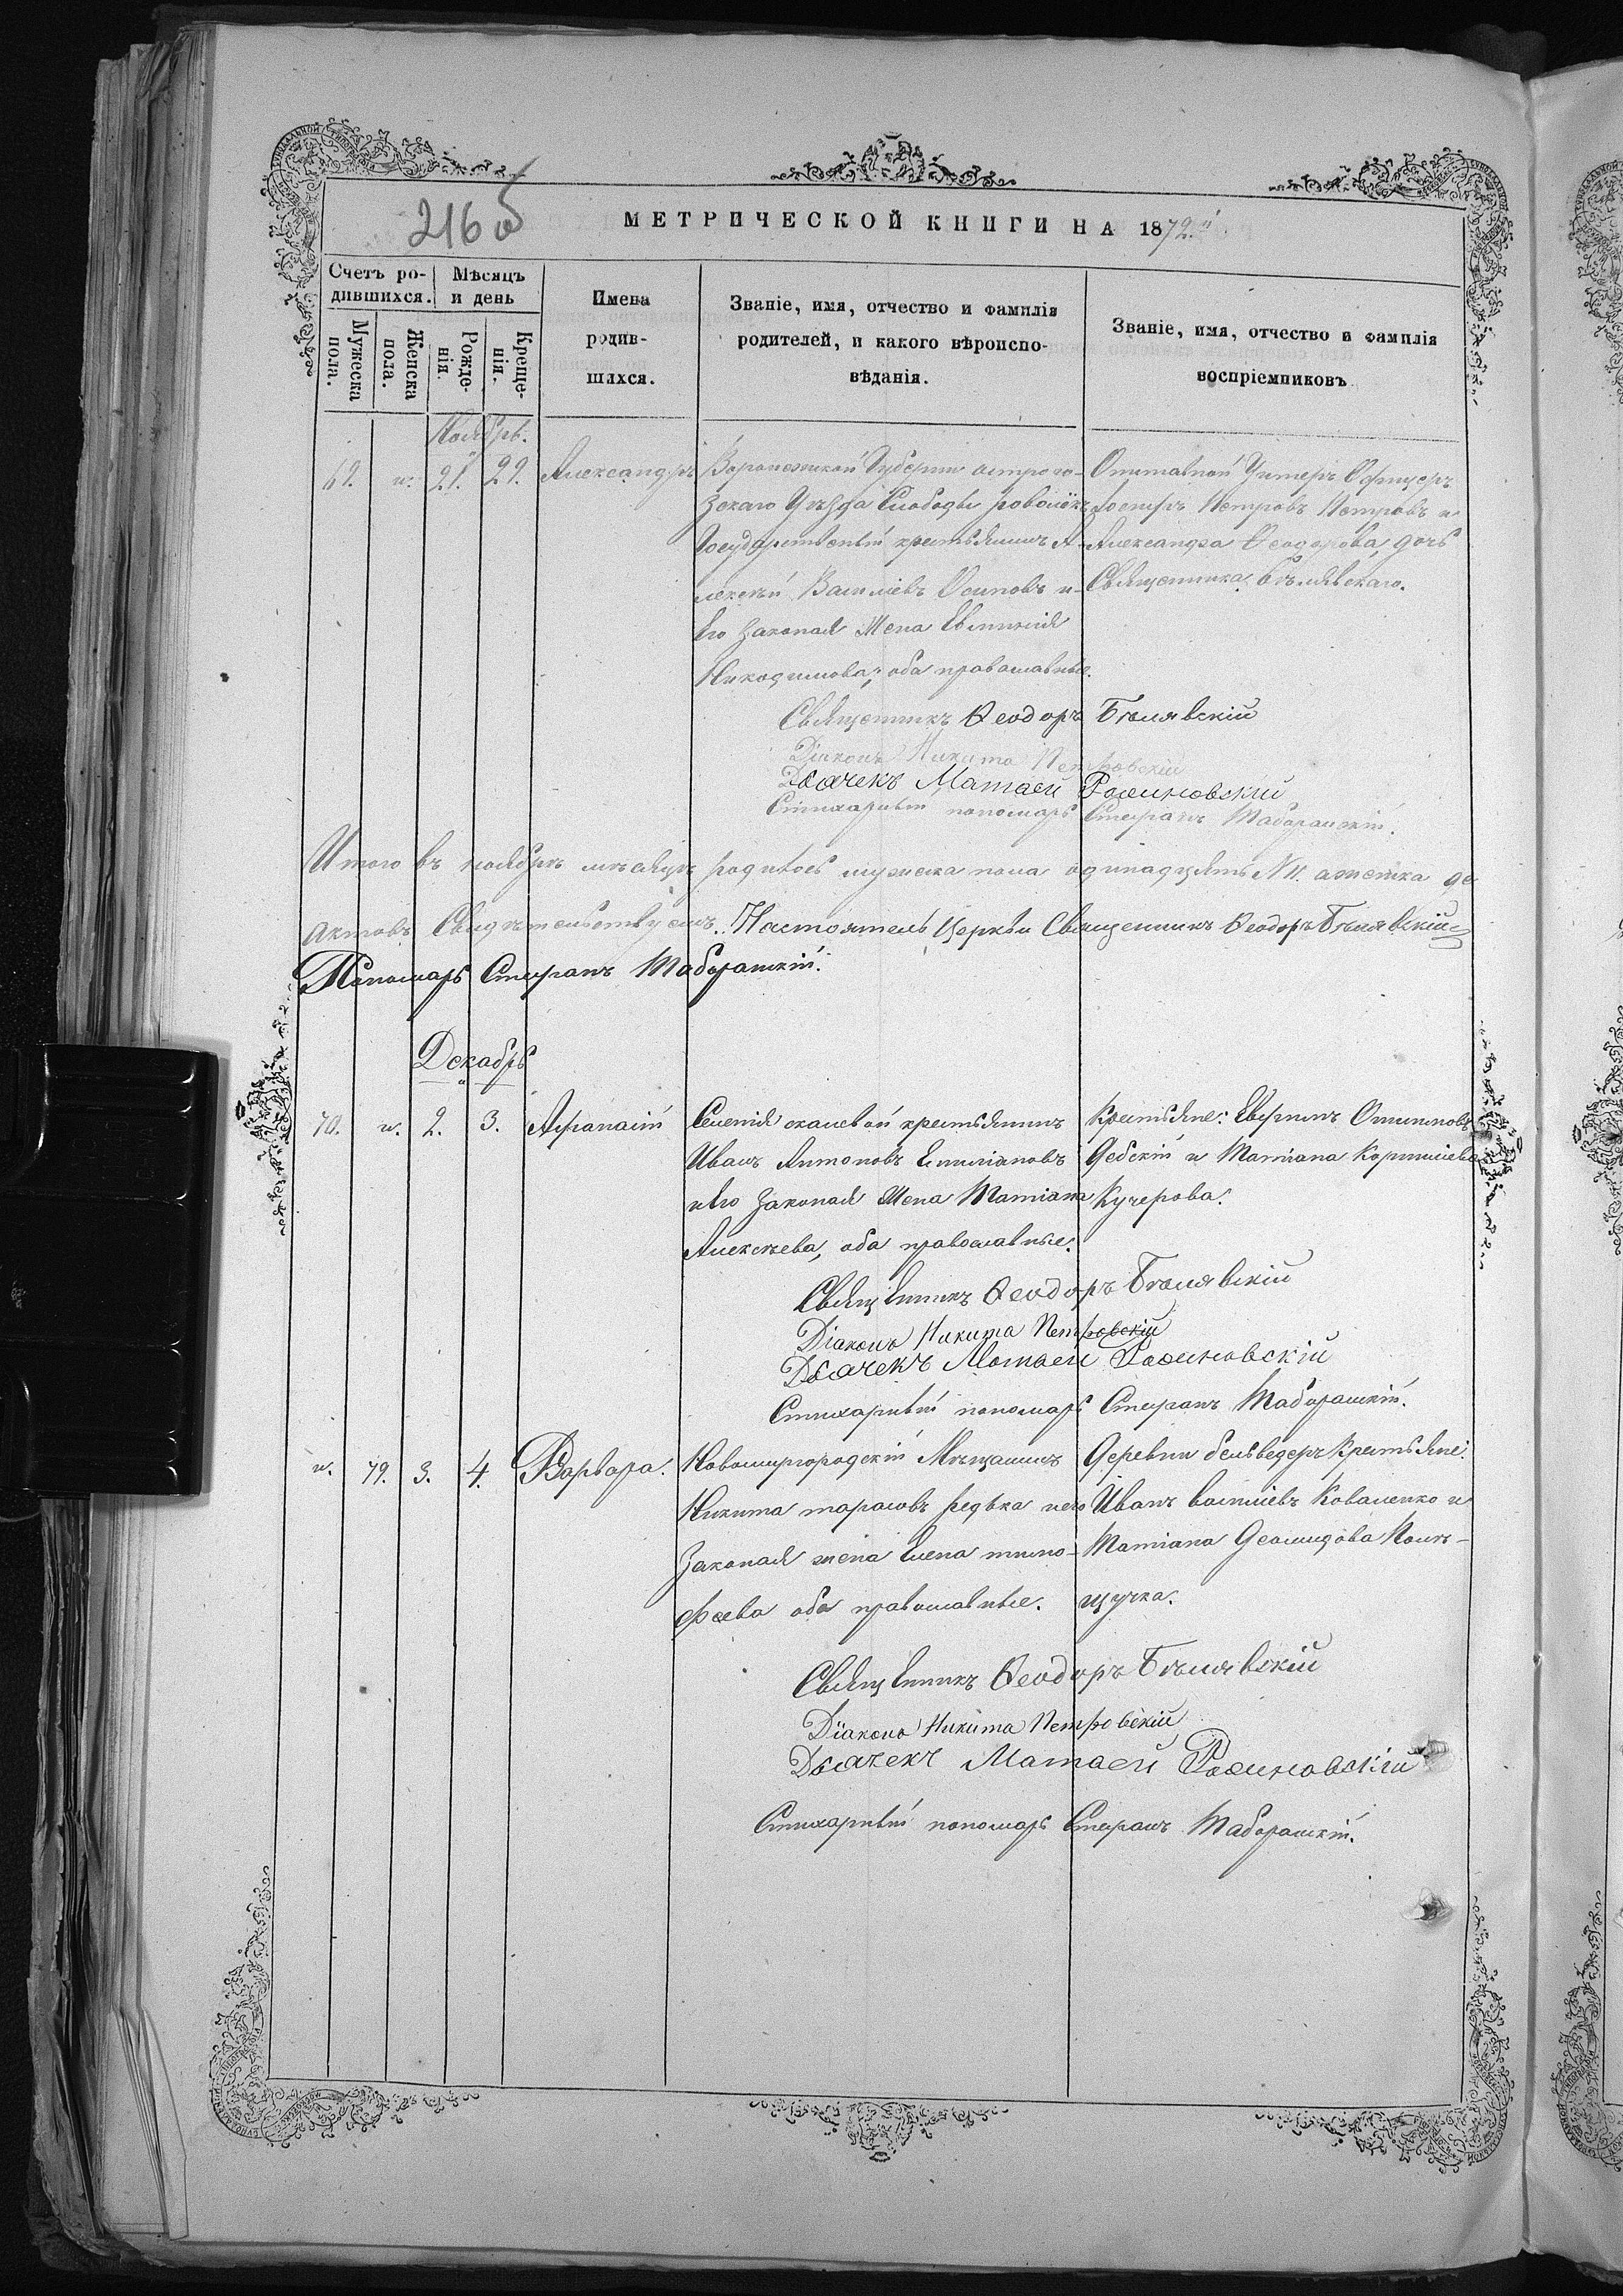 216 об
МЕТРИЧЕСКОЙ КНИГИ НА 1872.й
Счетъ ро-
дившихся.
Мѣсяцъ
и день
Мужеска
пола.
Женска
пола.
Рожде-
нія.
Креще-
нія.
Имена
родив-
шихся.
Званіе, имя, отчество и фамилія
родителей, и какого вѣроиспо-
вѣданія.
Званіе, имя, отчество и фамилія
воспріемниковъ
Ноябрь.
69. и. 21. 29. Александръ
Воронежской Губерніи острого-
зскаго Уѣзда Слободы
Государственный крестьянинъ А-
лексѣй Василіевъ Осиповъ и
Его Законая Жена Евликія
Никодимова; оба православные.
Отставной Унтеръ Офицеръ
Петровъ Петровъ и
Александра Ѳеодорова, дочь
Священника Бѣлявскаго.
Священникъ Ѳеодоръ Бѣлявскій
Діаконъ Никита Петровскій
Дьячекъ Матѳей
Стихарный пономарь Стефанъ
Итого въ ноябрѣ мѣсяцѣ родилось мужеска пола одинадцять N 11. а женска де
Свидѣтельствуемъ. Настоятель Церкви Священникъ Ѳеодоръ Бѣлявскій
Пономарь Стефанъ
Декабрь
70. и. 2. 3. Афанасій
Селенія крестьянинъ
Иванъ Антоновъ Емиліановъ
и Его Законая Жена Татіана
Алексѣева, оба православные.
Крестьяне: Евфимъ
и Татіана Корниліева
Кучерова.
Священникъ Ѳеодоръ Бѣлявскій
Діаконъ Никита Петровскій
Дьячекъ Матѳей
Стихарный пономарь Стефанъ
и. 79. 3. 4. Варвара.
Новомиргородскій Мѣщанинъ
Никита тарасовъ редька и его
Законая жена Елена тимо-
фѣева оба православные.
Деревни бельведеръ Крестьяне:
Иванъ василіевъ Коваленко и
Татіана Деомидова Полѣ-
щучка.
Священникъ Ѳеодоръ Бѣлявскій
Діаконъ Никита Петровскій
Дьячекъ Матѳей
Стихарный пономарь Стефанъ